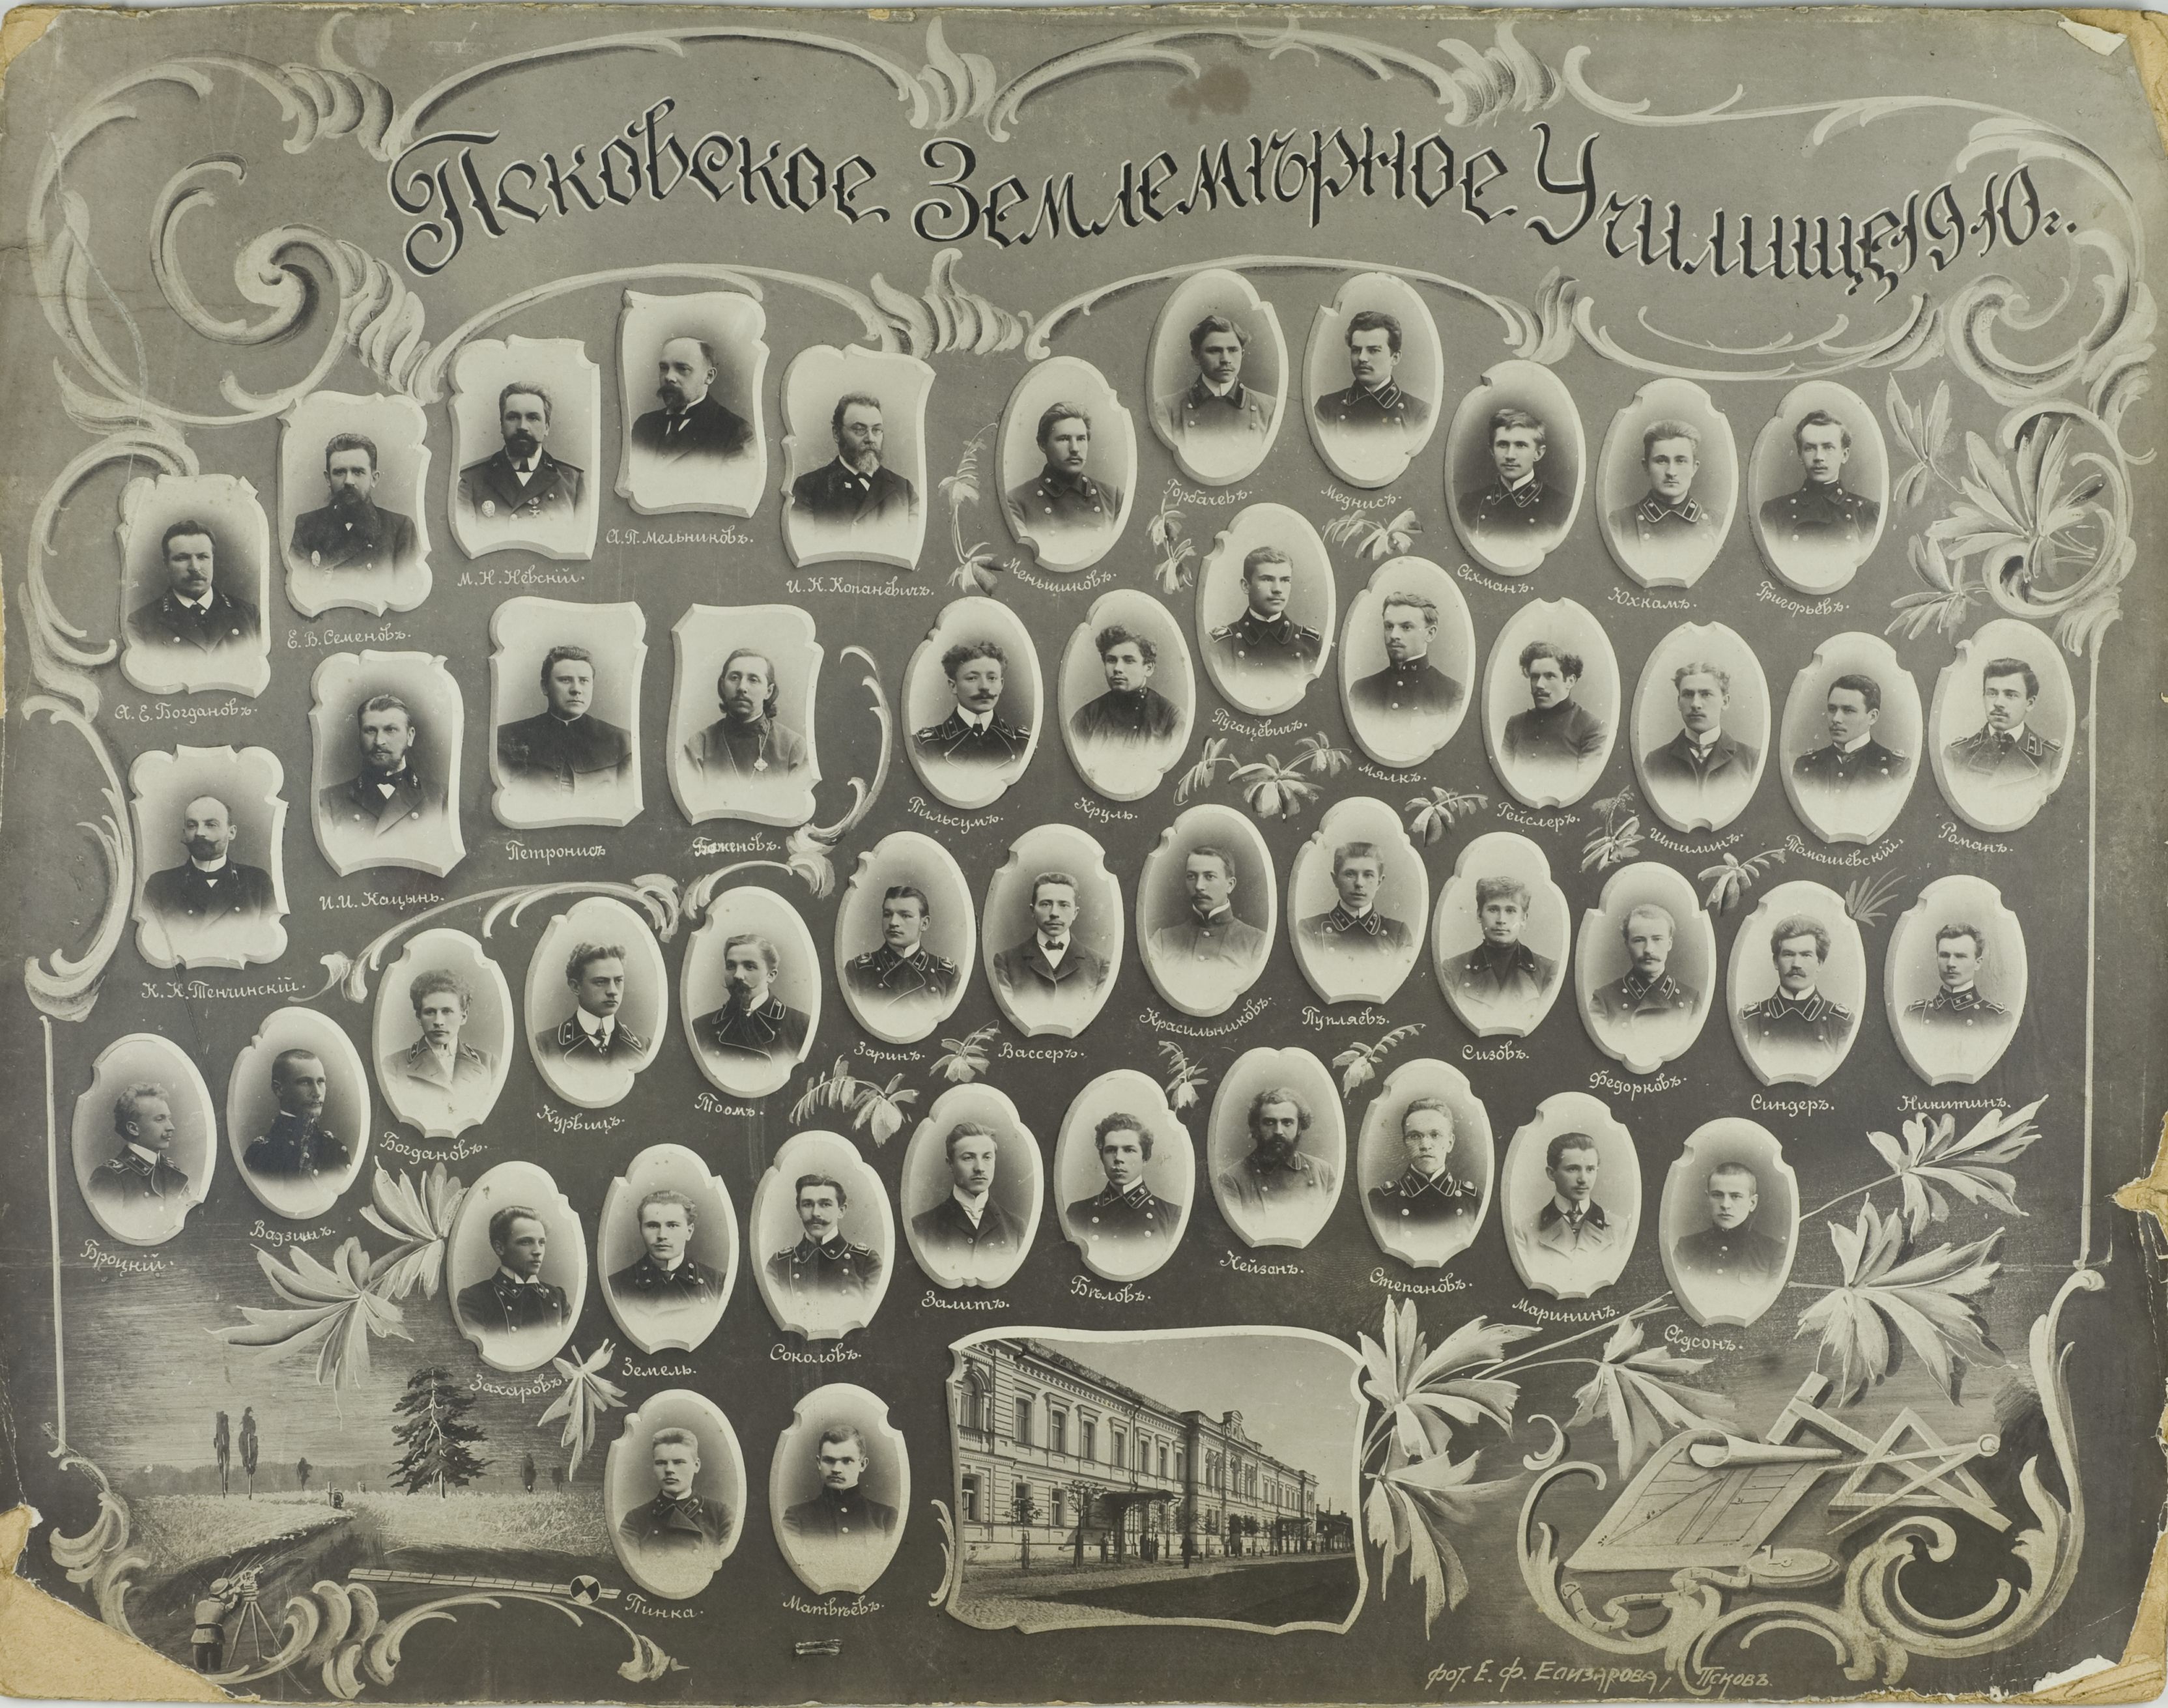 Псковское Землемѣрное Училище 1910 г.
А. П. Мельниковъ.
М. Н. Невскій.
И. К. Копаневичъ.
Е. В. Семеновъ.
А. Е. Богдановъ.
Горбачевъ.
Меднисъ.
Меньшиковъ.
Ахманъ.
Юхкамъ.
Григорьевъ.
Пугацевичъ.
Мялкъ.
Пильсумъ.
Круль.
Гейслеръ.
Шпилинъ.
Томашевскій.
Романъ.
Петронисъ
И. И. Кацынь.
К. К. Тенчинскій.
Заринъ.
Вассеръ.
Красильниковъ.
Пупляевъ.
Сизовъ.
Федорковъ.
Синдеръ.
Никитинъ.
Богдановъ.
Курвицъ.
Тоомъ.
Броцкій.
Вадзишъ.
Захаровъ.
Земель.
Соколовъ.
Залитъ.
Бѣловъ.
Нейзанъ.
Степановъ.
Марининъ.
Адсонъ.
Пинка.
Матвѣевъ.
фот. Е. Ф. Елизарова, Псковъ.